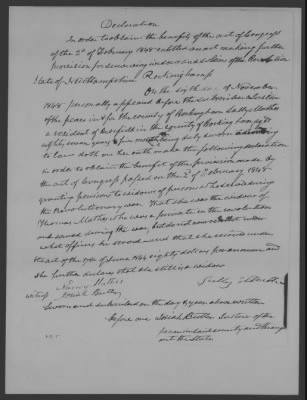 Declaration
In order to obtain the benefit of the act of Congress
of the 2d of February 1848 entitled an act making further
provision for surviving widows and soldiers of the Revolution
State of New Hampshire Rockingham ss
On the sixth day of November
1848 personally appeared before the subscriber a Justice
of the peace in & for the county of Rockingham Sally Mather
a resident of Deerfield in the county of Rockingham aged
eighty seven years & five months being duly sworn according
to law doth on her oath make the following declaration
in order to obtain the benefit of the provision made by
the act of Congress passed on the 2d of February 1848
granting pensions to widows of persons who served during
the Revolutionary war That she was the widow of
Thomas Mather who was a private in the revolution
and served during the war, but does not under
what officers he served that she received under
the act of the of June 1844 eighty dollars per annum and
she further declares that she is still a widow
Nancy
witness Josiah Butler Sally Mather
Sworn and subscribed on the day & year above written
Before me Josiah Butler Justice of the
peace in said county and through
out the State